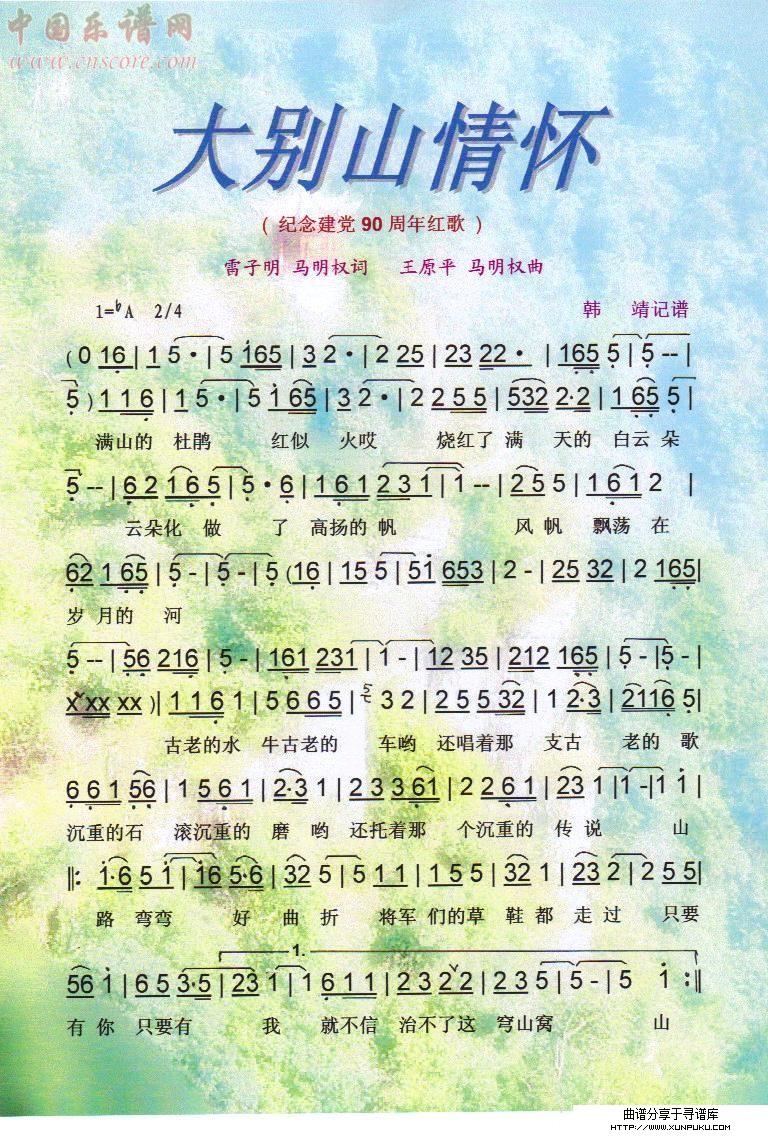 中国乐谱网
www.cnscore.com
大别山情怀
( 纪念建党 90 周年红歌 )
雷子明 马明权词 王原平 马明权曲
1=♭A 2/4 韩 靖记谱
(0 16 | 1 5· | 5 165 | 3 2· | 2 25 | 23 22· | 165 5 | 5 -- |
5 ) 1 1 6 | 1 5· | 5 1 65 | 3 2· | 2 2 5 5 | 532 2·2 | 1 65 5 |
满山的 杜鹃 红似 火哎 烧红了 满 天的 白云 朵
5 -- | 6 2 1 6 5 | 5· 6 | 1 6 1 2 3 1 | 1 -- | 2 5 5 | 1 6 1 2 |
云朵化 做 了 高扬的 帆 风 帆 飘荡 在
62 1 65 | 5 - | 5 - | 5 (16 | 15 5 | 51 653 | 2 - | 25 32 | 2 165 |
岁 月的 河
5 -- | 56 216 | 5 - | 161 231 | 1 - | 12 35 | 212 165 | 5 - | 5 - |
x xx xx )| 1 1 6 1 | 5 6 6 5 | 5 3 2 | 2 5 5 32 | 1 2·3 | 2116 5 |
古老的水 牛古老的 车哟 还唱着那 支古 老的 歌
6 6 1 56 | 1 5 6 1 | 2·3 1 | 2 3 3 61 | 2 2 6 1 | 23 1 | 1 - | 1 1 |
沉重的石 滚沉重的 磨 哟 还托着那 个沉重的 传 说 山
‖: 1·6 5 1 | 16 5·6 | 32 5 | 5 1 1 | 1 5 5 | 32 1 | 23 2 | 2 5 5 |
路 弯弯 好 曲 折 将军 们的草 鞋 都 走 过 只要
1.
56 1 | 6 5 3·5 | 23 1 | 1 6 1 1 | 2 2 3 2 2 | 2 3 5 | 5 - | 5 1 :‖
有 你 只要有 我 就不信 治不了这 穹山窝 山
曲谱分享于寻谱库
HTTP://WWW.XUNPUKU.COM